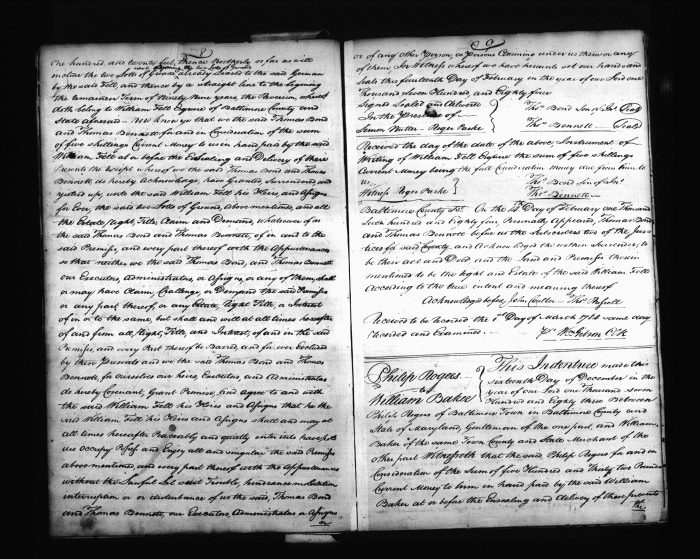 8
One hundred, and twenty feet, thence Northerly so far as will
inclose the two Lotts of Ground already Leased to the said German
by the said Fell, and thence by a straight line to the beginning
the remainder Term of Ninety Nine years the Reversion whereof
doth belong to William Fell Esquire of Baltimore County and
State aforesaid - Now know ye that we the said Thomas Bond
and Thomas Bennett for and in Consideration of the sum
of five shillings Current Money to us in hand paid by the said
William Fell at or before the Ensealing and Delivery of these
Presents the receipt whereof we the said Thomas Bond and Thomas
Bennett do hereby Acknowledge, have Granted, surrendered and
yielded up, unto the said William Fell his Heirs and Assigns
for Ever, the said two Lotts of Ground, above mentioned, and all
the Estate, Right, Title, Claim and Demand, whatsoever of us
the said Thomas Bond and Thomas Bennett, of in and to the
said Premises, and every part thereof with the Appurtenances
so that neither we the said Thomas Bond, and Thomas Bennett
our Executors, Administrators, or Assigns, or any of them shall
or may have Claim, Challenge, or Demand the said Premises
or any part thereof, or any Estate, Right Title, or Interest
of in or to the same, but shall and will at all times hereafter
of and from all, Right, Title, and Interest, of and in the said
Premises, and every Part thereof be Barred, and for ever Excluded
by these Presents and we the said Thomas Bond and Thomas
Bennett, for ourselves our heirs, Executors, and Administrators
do hereby Covenant, Grant Promise, and agree to and with
the said William Fell his Heirs and Assigns that he the
said William Fell his Heirs and Assigns shall and may at
all times hereafter Peaceably and quietly enter into have, hold
use occupy Possess and Enjoy all and singular the said Premises
above mentioned, and every part thereof with the Appurtenances
without the Lawful Let suit Trouble, hindrance molestation
interruption or or disturbance of us the said Thomas Bond
and Thomas Bennett, our Executors, Administrators or Assigns
or
9
or of any other Person, or Persons Claiming under us them or any
of them In Witness whereof we have hereunto set our hands and
Seals this fourteenth Day of February in the year of our Lord one
Thousand Seven Hundred, and Eighty four
Signed Sealed and Delivered Thos. Bond Son of Jno. Seal
In the Presence of
Simon Nutter - Roger Parke Thos. Bennett Seal
Received the day of the date of the above Instrument of
Writing of William Fell Esquire the sum of five shillings
Current Money being the full Consideration Money due from him to
us Thos. Bond Son of Jno.
Witness Roger Parke Thos. Bennett
Baltimore County Sct. On the 14th Day of February one Thousand
Seven hundred and Eighty four Personally appeared, Thomas Bond
and Thomas Bennett before us the Subscribers two of the Jus-
tices for said County, and Acknowledged the within Surrender, to
be their act and Deed, and the Land and Premises therein
mentioned to be the right and Estate of the said William Fell
According to the true intent and meaning thereof
Acknowledged before, Thos. Russell
Received to be Recorded the 1st Day of March 1784 same day
Recorded and Examined. Pr. Wm. Gibson Clk
Philip Rogers
William Baker
This Indenture made this
sixteenth Day of December in the
year of our Lord one Thousand seven
Hundred and Eighty three Between
Philip Rogers of Baltimore Town in Baltimore County and
State of Maryland, Gentleman of the one part, and William
Baker of the same Town County and State Merchant of the
other part Witnesseth that the said Philip Rogers for and in
Consideration of the Sum of Five Hundred and Thirty two Pounds
Current Money to him in hand paid by the said William
Baker at or before the Ensealing and delivery of these presents
the